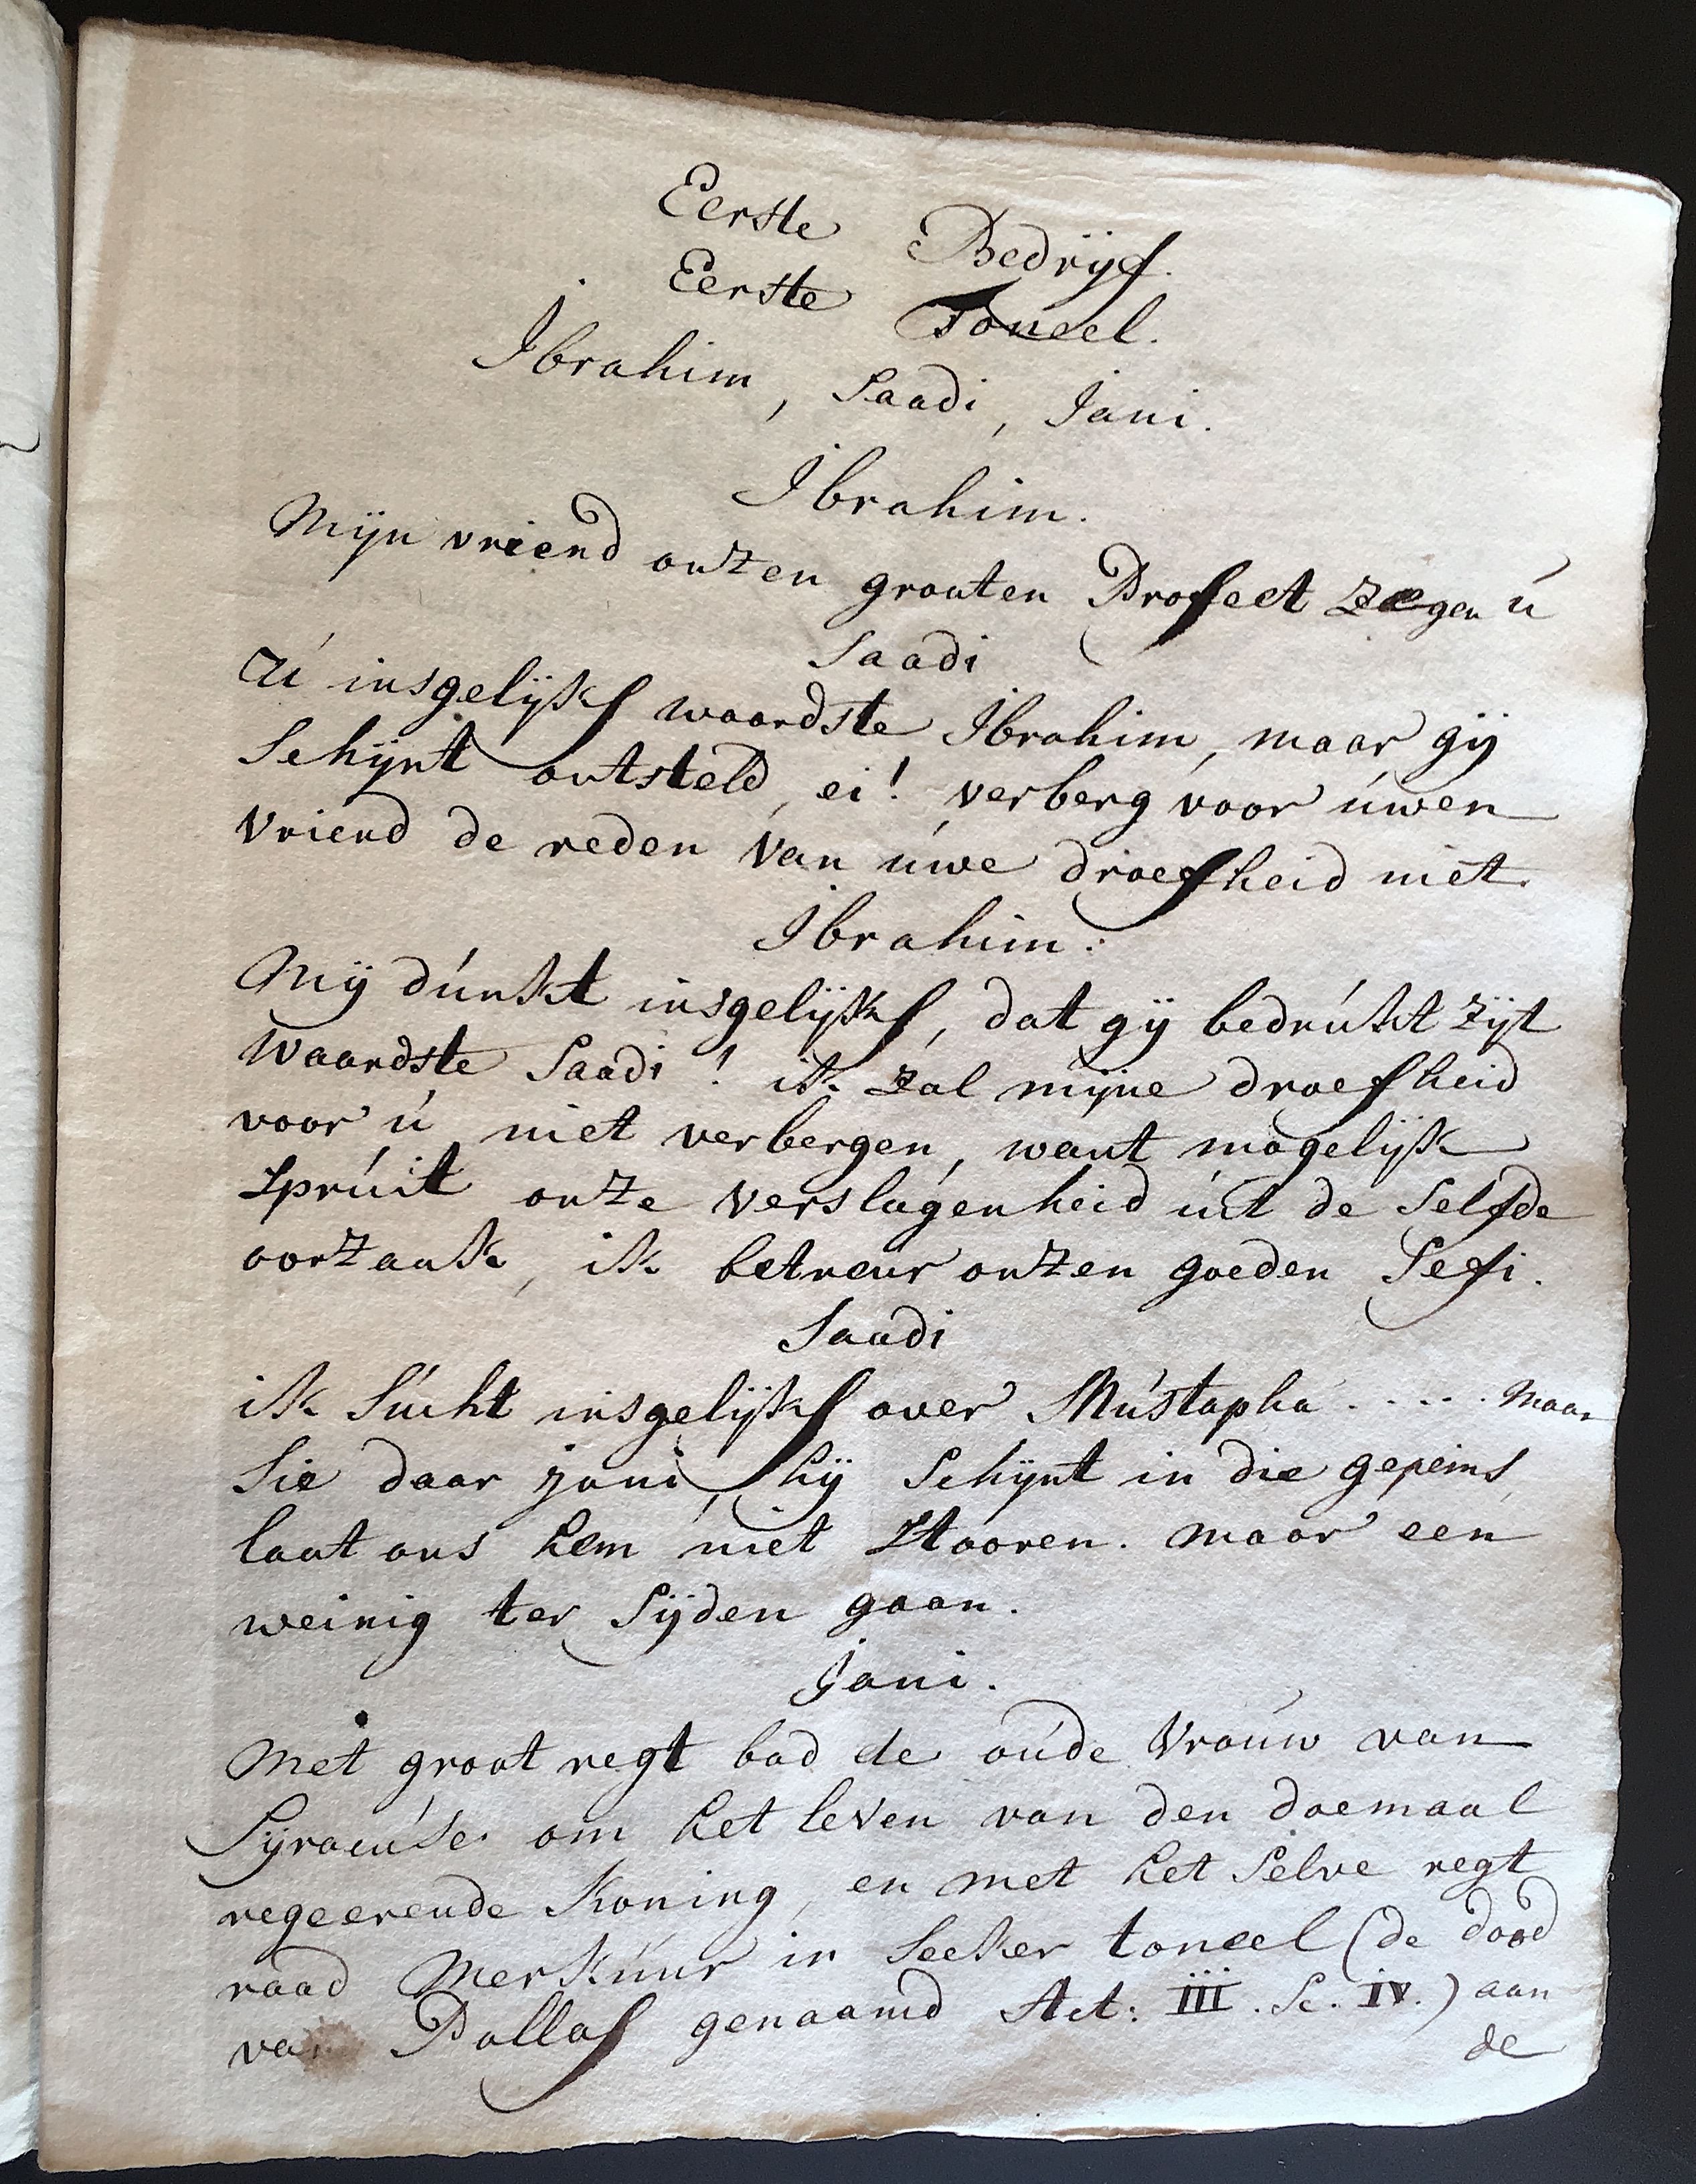 Eerste Bedrijf.
Eerste Toneel.
Ibrahim, Saadi, Jani.
Ibrahim.
Mijn vriend onzen grooten Profeet zegen ú
Saadi
Ú insgelijks waardste Ibrahim, maar gij
Schijnt ontsteld, ei! verberg voor úwen
vriend de reden van úwe droefheid niet.
Ibrahim:
Mij dúnkt insgelijks, dat gij bedrúkt zijt
Waardste Saadi! ik zal mijne droefheid
voor ú niet verbergen, want mogelijk
zprúit onze verslagenheid úit de Selfde
oorzaak, ik betreur onzen goeden Sefi.
Saadi
ik Súcht insgelijks over Mústapha . . . . . Maar
Sie daar jani, hij Schijnt in die gepeins,
laat ons hem niet ztooren. maar een
weinig ter Sijden gaan.
Jani.
Met groot regt bad de oúde Vroúw van
Syracúse om het leven van den doemaal
regeerende Koning, en met het Selve regt
raad Merkúúr in Seeker toneel (de dood
van Pallas genaamd Act: III. Sc. IV.) aan
de